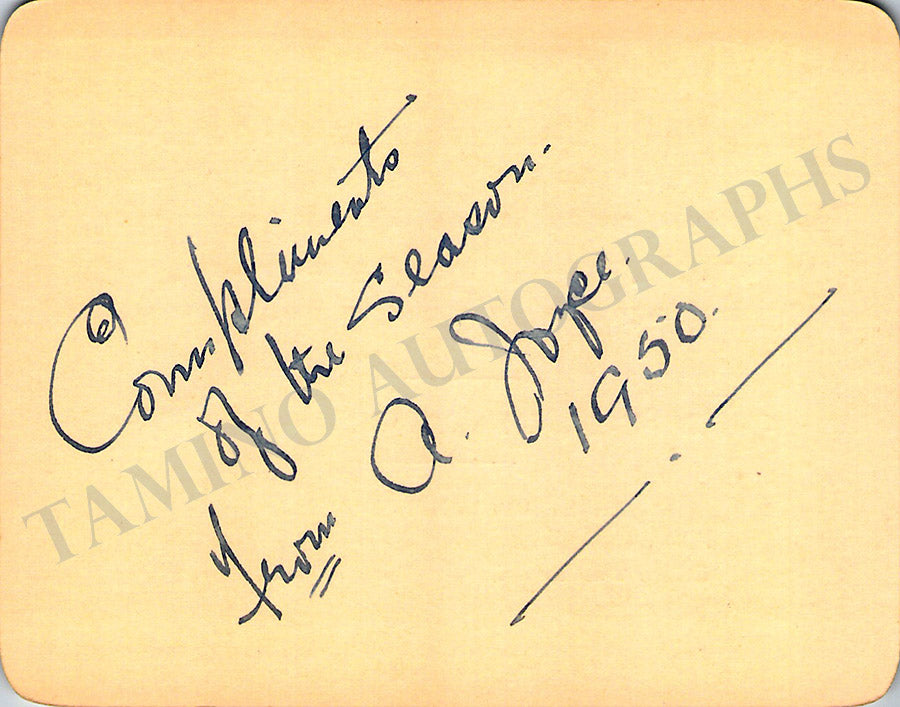 Compliments
of the Season.
from A. Joyce.
1950.
TAMINO AUTOGRAPHS